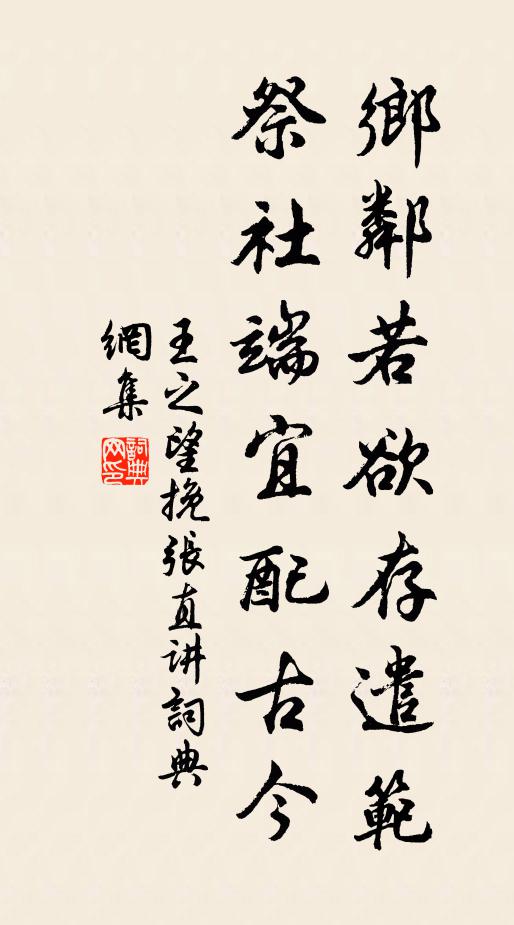 鄉鄰若欲存遣範
祭社端宜配古今
王之望挽張直讲詞典
網集
詞典網印